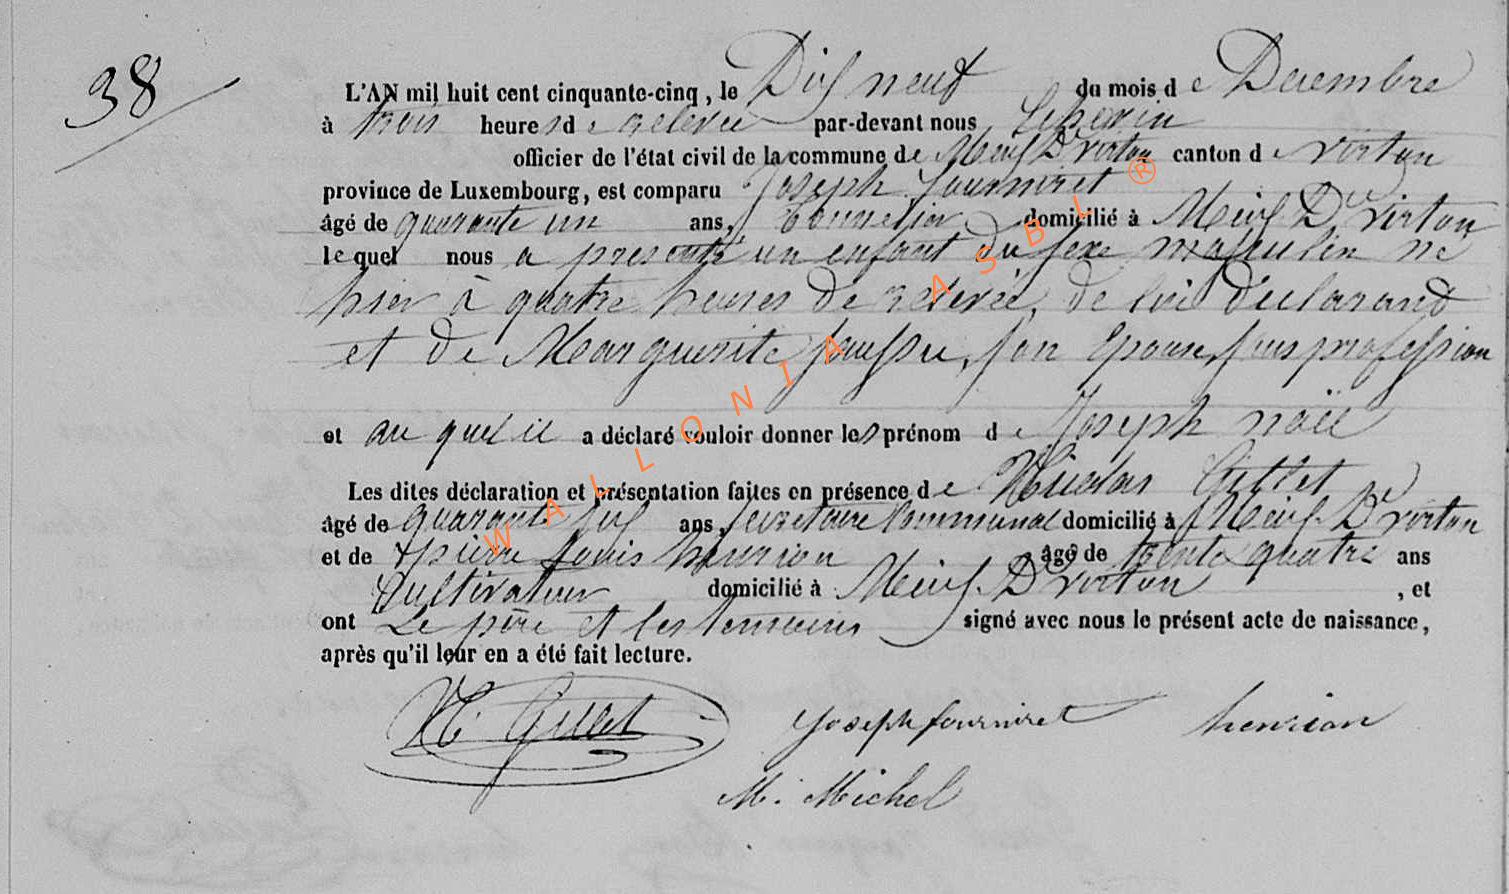 38
L'AN mil huit cent cinquante-cinq, le Dix neuf du mois de Decembre
à trois heures de relevée par-devant nous Echevin
officier de l'état civil de la commune de Meix Dt virton canton de virton
province de Luxembourg, est comparu Joseph fourniret
âgé de quarante un ans, tonnelier domicilié à Meix Dt virton
le quel nous a presenté un enfant du sexe masculin né
hier à quatre heures de relevée, de lui déclarant
et de Marguerite son Epouse, sans profession
et au quel il a déclaré vouloir donner les prénom de Joseph noël
Les dites déclaration et présentation faites en présence de Nicolas Gillet
âgé de quarante six ans, secretaire Communal domicilié à Meix Dt virton
et de pierre louis henrion âgé de trente quatre ans
Cultivateur domicilié à Meix Dt virton, et
ont Le père et les temoins signé avec nous le présent acte de naissance,
après qu'il leur en a été fait lecture.
N. Gillet Joseph fourniret henrion
M. Michel
WALLONIA ASBL ®